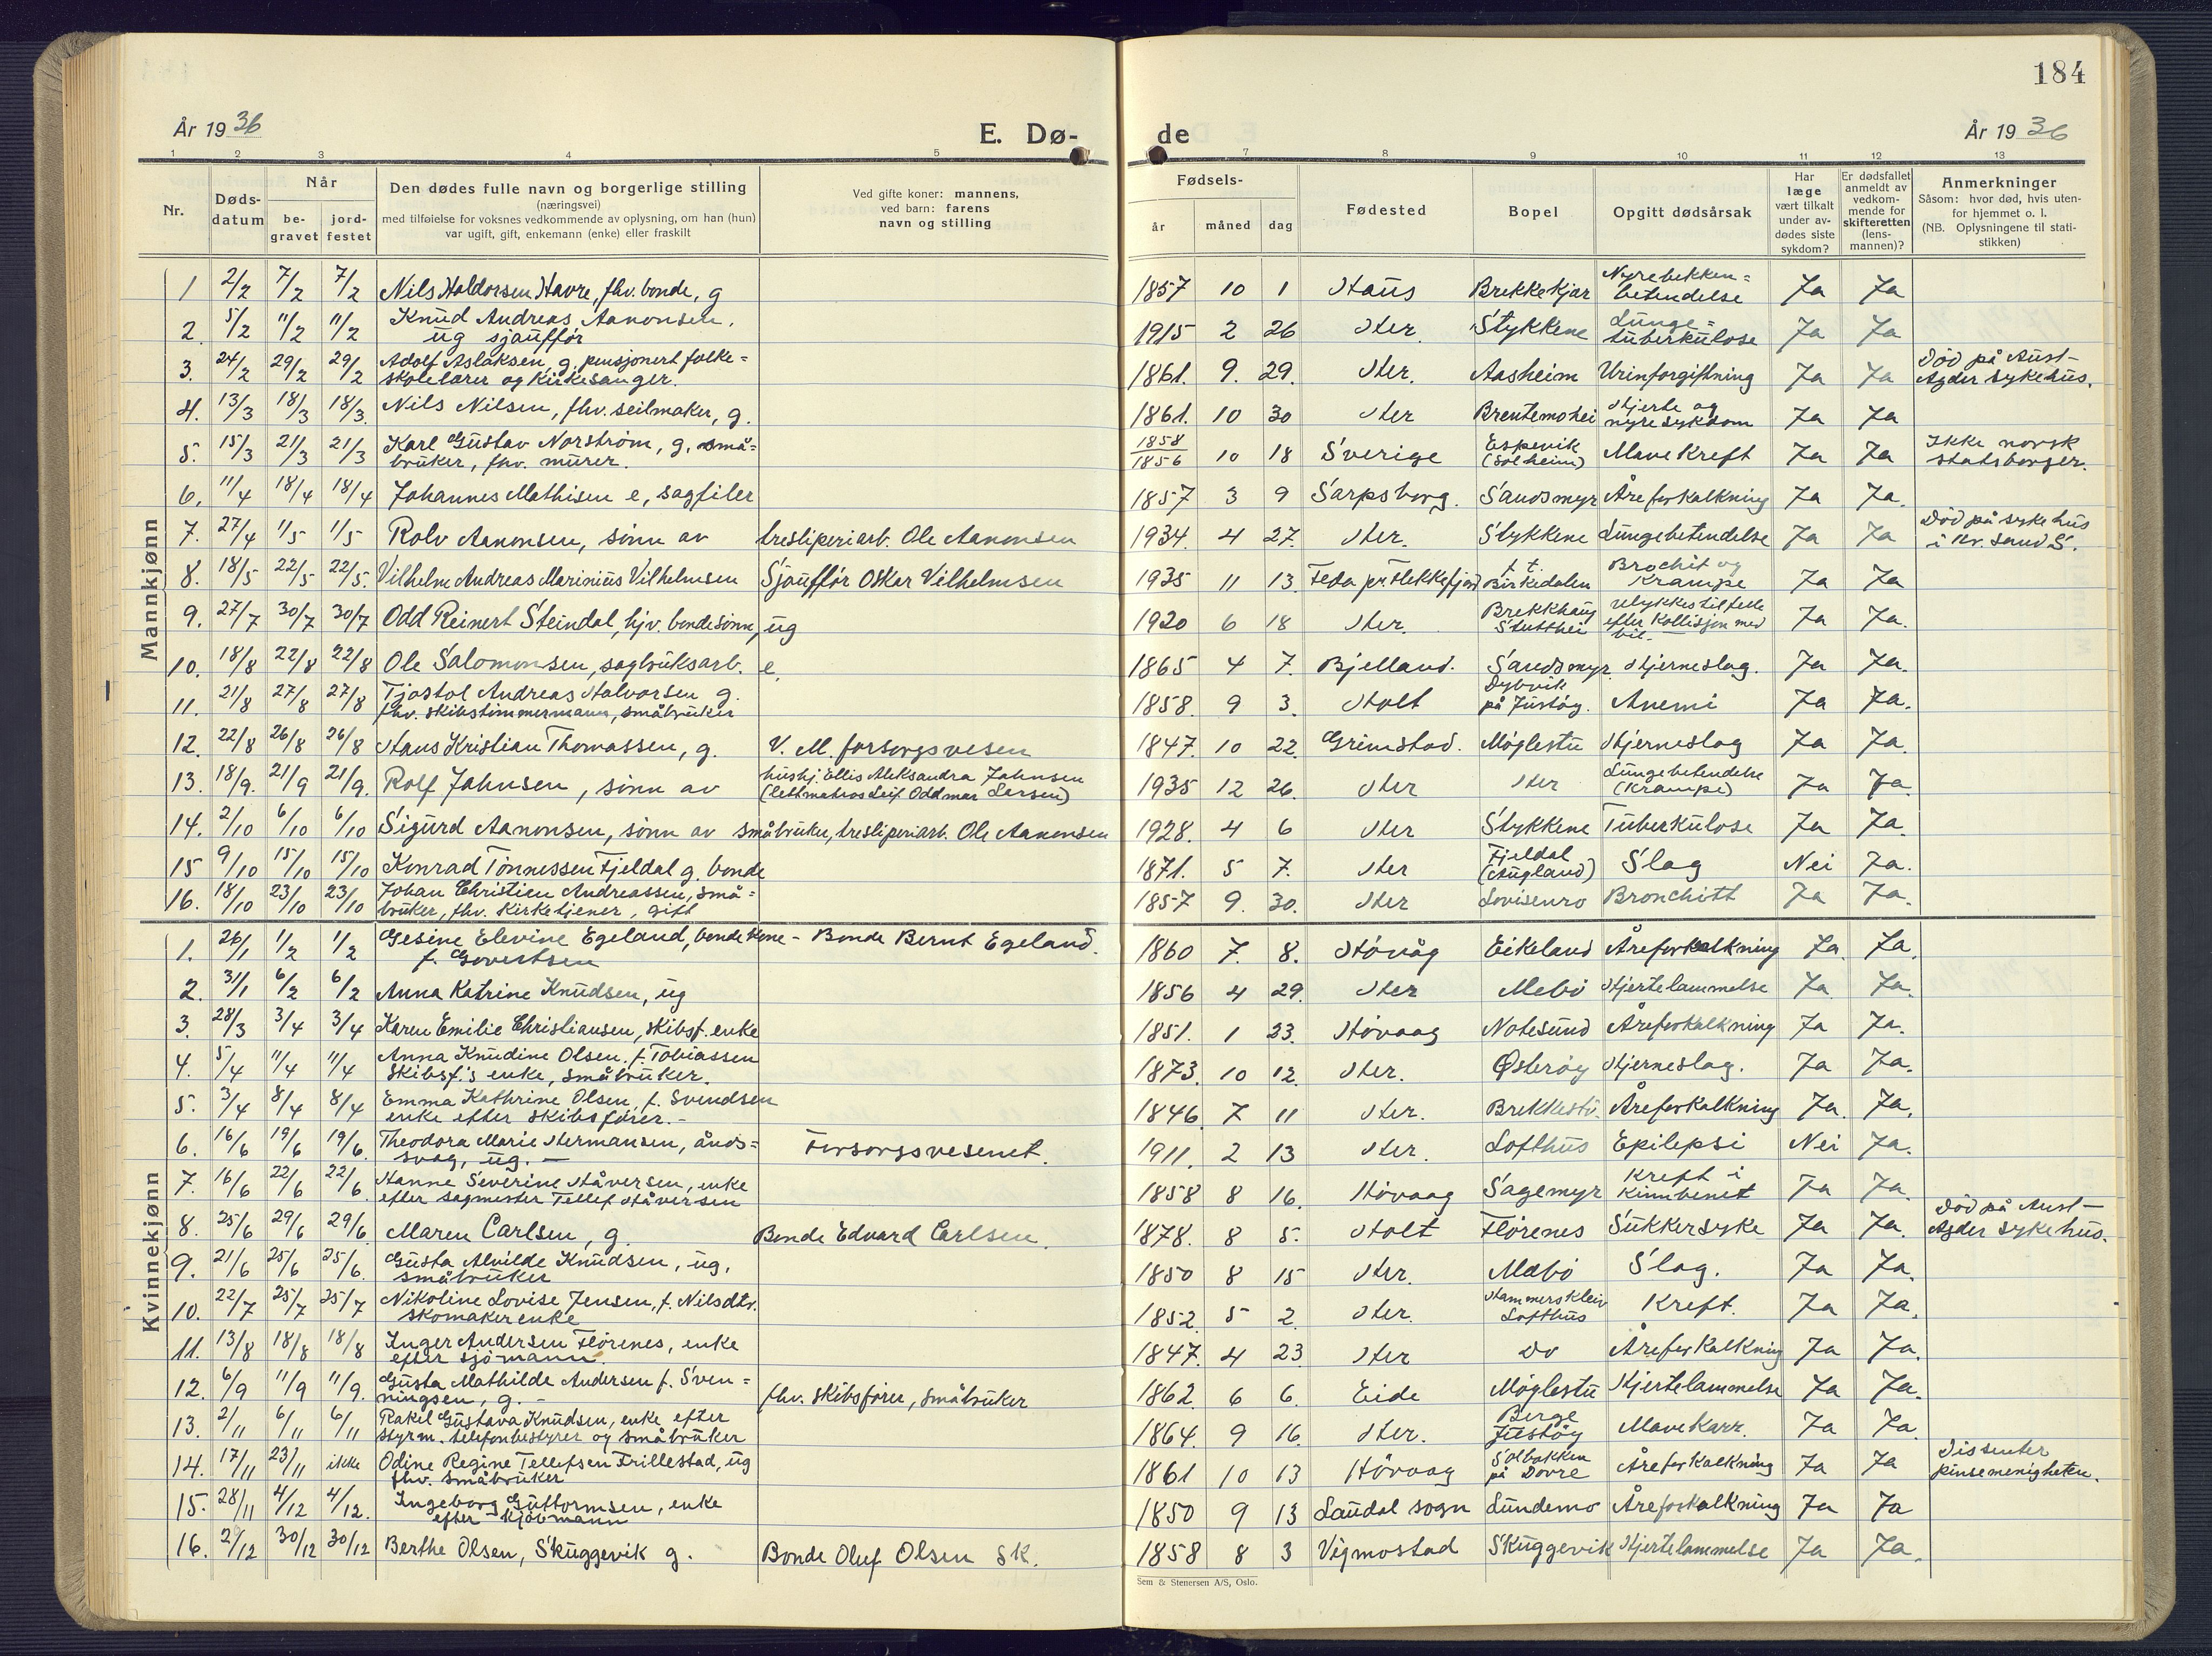 184
År 1936
E. Dø-
de
År 1936
1 2 3 4 5
7 8 9 10 11 12 13
Nr.
Døds-
datum
Når
be-
gravet
jord-
festet
Den dødes fulle navn og borgerlige stilling
(næringsvei)
med tilføielse for voksnes vedkommende av oplysning, om han (hun)
var ugift, gift, enkemann (enke) eller fraskilt
Ved gifte koner: mannens,
ved barn: farens
navn og stilling
Fødsels-
år måned dag
Fødested
Bopel
Opgitt dødsårsak
Har
læge
vært tilkalt
under av-
dødes siste
sykdom?
Er dødsfallet
anmeldt av
vedkom-
mende for
skifteretten
(lens-
mannen)?
Anmerkninger
Såsom: hvor død, hvis uten-
for hjemmet o. l.
(NB. Oplysningene til stati-
stikken)
Mannkjønn
1 2/2 7/2 7/2 Nils Haldorsen Havre, fhv. bonde, g 1857 10 1 Haus Brekkekjær Nyrebekken=
betendelse Ja Ja
2. 5/2 11/2 11/2 Knud Andreas Aanonsen,
ug sjauffør 1915 2 26 Her. Stykkene Lunge=
tuberkulose Ja Ja
3. 24/2 29/2 29/2 Adolf Aslaksen, g, pensjonert folke=
skolelærer og kirkesanger. 1861. 9. 29. Her. Aasheim Urinforgiftning Ja Ja Død på Aust-
Agder sykehus.
4. 13/3 18/3 18/3. Nils Nilsen, fhv. seilmaker, g. 1861. 10 30 Her Brentemohei Hjerte og
nyresykdom Ja Ja
5. 15/3 21/3 21/3 Karl Gustav Norstrøm, g, små=
bruker, fhv. murer. 1858
1856 10 18 Sverige Espevik
(Solheim) Mavekreft Ja Ja Ikke norsk
statsborger.
6. 11/4 18/4 18/4 Johannes Mathisen e, sagfiler 1857 3 9 Sarpsborg. Sandsmyr Åreforkalkning Ja Ja.
7. 27/4 1/5 1/5 Rolv Aanonsen, sønn av tresliperiarb. Ole Aanonsen 1934. 4 27. Her. Stykkene Lungebetendelse Ja Ja Død på sykehus
i Kr. sand S.
8. 18/5 22/5 22/5. Vilhelm Andreas Marinius Vilhelmsen Sjauffør Osker Vilhelmsen 1935 11 13. Feda pr Flekkefjord t. t.
Birkedalen Brochit og
Krampe Ja Ja
9. 27/7 30/7 30/7 Odd Reinert Steindal, hjv. bondesønn, ug 1920 6 18 Her. Brekkhaug
Stutthei Ulykkestilfelle
efter kollisjon med
bil. Ja Ja.
10. 18/8 22/8 22/8 Ole Salomonsen, sagbruksarb. e. 1865 4 7. Bjelland. Sandsmyr Hjerneslag. Ja Ja.
11. 21/8 27/8 27/8 Tjøstol Andreas Halvorsen g.
fhv. skibstimmermann, småbruker 1858. 9 3. Holt Dybvik
på Justøy. Anemi Ja Ja.
12. 22/8 26/8 26/8 Hans Kristian Thomassen, g. V. M. forsorgsvesen 1847. 10 22. Grimstad. Møglestu Hjerneslag Ja Ja.
13. 18/9. 21/9 21/9. Rolf Jahnsen, sønn av hushj. Ellis Aleksandra Jahnsen
(lettmatros Leif Oddmar Larsen) 1935 12 26. Her Her Lungebetendelse
(Krampe) Ja Ja.
14. 2/10 6/10 6/10 Sigurd Aanonsen, sønn av småbruker, tresliperiarb. Ole Aanonsen 1928. 4 6 Her Stykkene Tuberkulose Ja Ja.
15 9/10 15/10 15/10 Konrad Tønnessen Fjeldal g. bonde 1871. 5 7. Her Fjeldal
Slag Nei Ja.
16. 18/10 23/10 23/10 Johan Christian Andreassen, små=
bruker, fhv. kirketjener, gift 1857 9. 30. Her Lovisenro Bronchitt Ja Ja.
Kvinnekjønn
1. 26/1 1/2 1/2 Gesine Elevine Egeland, bondekone - Bonde Bernt Egeland.
f. Govertsen 1860 7. 8. Høvåg Eikeland Åreforkalkning Ja. Ja.
2. 31/1 6/2 6/2 Anna Katrine Knudsen, ug 1856 4 29. Her Mebø Hjertelammelse Ja Ja.
3. 28/3 3/4 3/4 Karen Emilie Christiansen, skibsf. enke 1851. 1 23. Høvaag Notesund Åreforkalkning Ja Ja.
4. 5/4 11/4 11/4 Anna Knudine Olsen. f. Tobiassen
skibsf.'s enke, småbruker. 1873. 10 12. Her. Østerøy Hjerneslag. Ja Ja.
5. 3/4 8/4 8/4 Emma Kathrine Olsen, f. Svendsen
enke efter skibsfører. - 1846. 7 11 Her. Brekkestø. Åreforkalkning Ja. Ja.
6. 16/6 19/6 19/6. Theodora Marie Hermansen, ånds=
svag, ug. — Forsorgsvesenet. 1911. 2 13 Her. Lofthus Epilepsi Nei Ja.
7. 16/6 22/6 22/6. Hanne Severine Håversen, enke
efter sagmester Tellef Håversen 1858 8 16. Høvaag Sagemyr Kreft i
Kinnbenet Ja Ja.
8. 25/6 29/6 29/6 Maren Carlsen, g. Bonde Edvard Carlsen. 1878. 8 5. Holt Flørenes Sukkersyke Ja Ja. Død på Aust-
Agder sykehus.
9. 21/6 25/6 25/6. Gusta Alvilde Knudsen, ug,
småbruker 1850 8 15 Her. Mebø Slag. Ja Ja.
10. 22/7 25/7 25/7 Nikoline Lovise Jensen, f. Nilsdtr.
skomakerenke 1852. 5 2. Her. Hammerskleiv
Lofthus Kreft. Ja Ja.
11. 13/8 18/8 18/8 Inger Andersen Flørenes, enke
efter sjømann. 1847. 4 23. Her Do Åreforkalkning Ja Ja.
12. 6/9 11/9 11/9. Gusta Mathilde Andersen f. Sven=
ningsen, g. - fhv. skibsfører, småbruker 1862. 6 6. Eide Møglestu Hjertelammelse Ja Ja.
13. 2/11 6/11 6/11 Rakel Gustava Knudsen, enke efter
styrm. telefonbestyrer og småbruker 1864. 9 16. Her. Berge
Justøy Mavekarr. Ja Ja.
14. 17/11 23/11 ikke Odine Regine Tellefsen Trillestad, ug
fhv. småbruker 1861 10 13 Høvaag Solbakken
på Dovre Åreforkalkning Ja Ja Dissenter
pinsemenigheten.
15. 28/11 4/12 4/12. Ingeborg Guttormsen, enke
efter kjøbmann 1850 9 13 Laudal sogn Lundemo Åreforkalkning Ja Ja
16. 2?/12 30/12 30/12 Berthe Olsen, Skuggevik g. Bonde Oluf Olsen Sk. 1858 8 3 Vigmostad Skuggevik Hjertelammelse Ja Ja.
Sem & Stenersen A/S, Oslo.